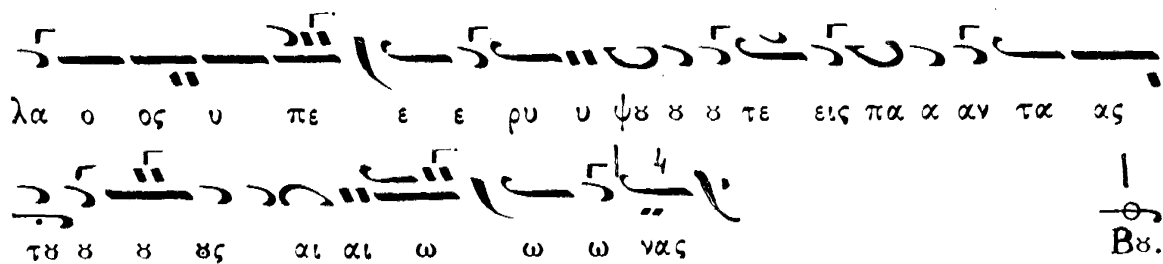 λα ο ος υ πε ε ε ρυ υ ψȣ ȣ ȣ τε εις πα α αν τα ας
τȣ ȣ ȣ ȣς αι αι ω ω ω νας Βȣ.